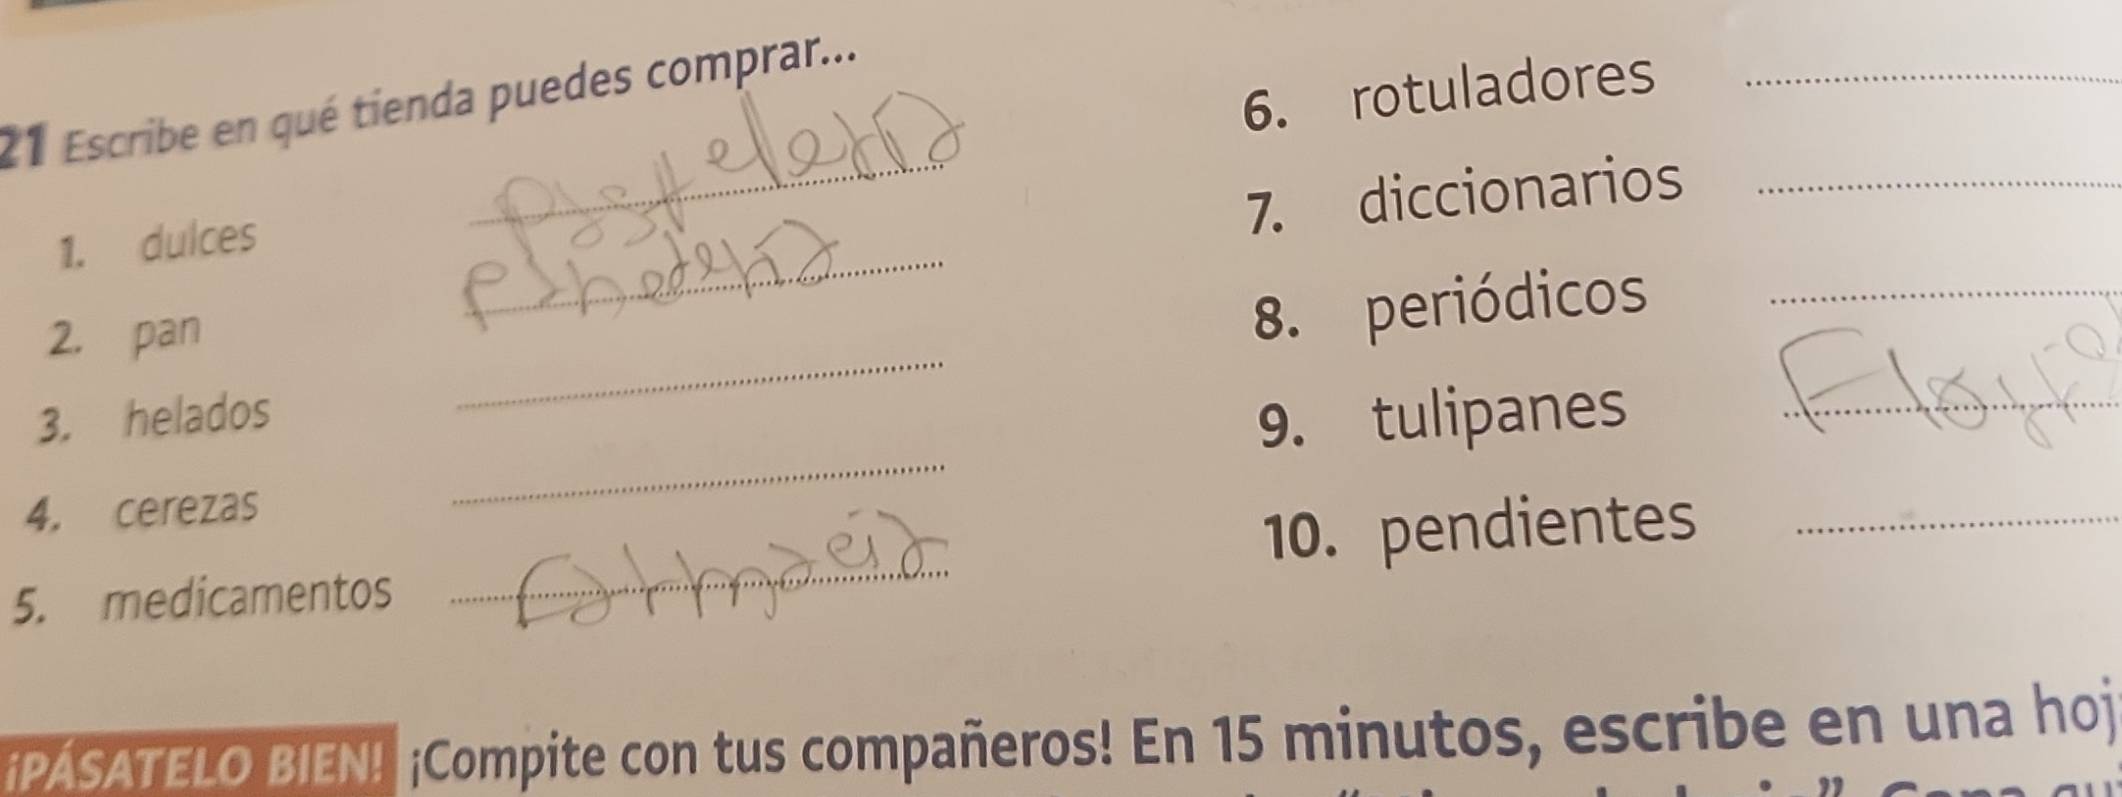 21 Escribe en qué tienda puedes comprar...
1. dulces pastelería
2. pan panadería
3. helados
4. cerezas
5. medicamentos Farmacia
6. rotuladores
7. diccionarios
8. periódicos
9. tulipanes
10. pendientes
¡PÁSATELO BIEN! ¡Compite con tus compañeros! En 15 minutos, escribe en una hoj